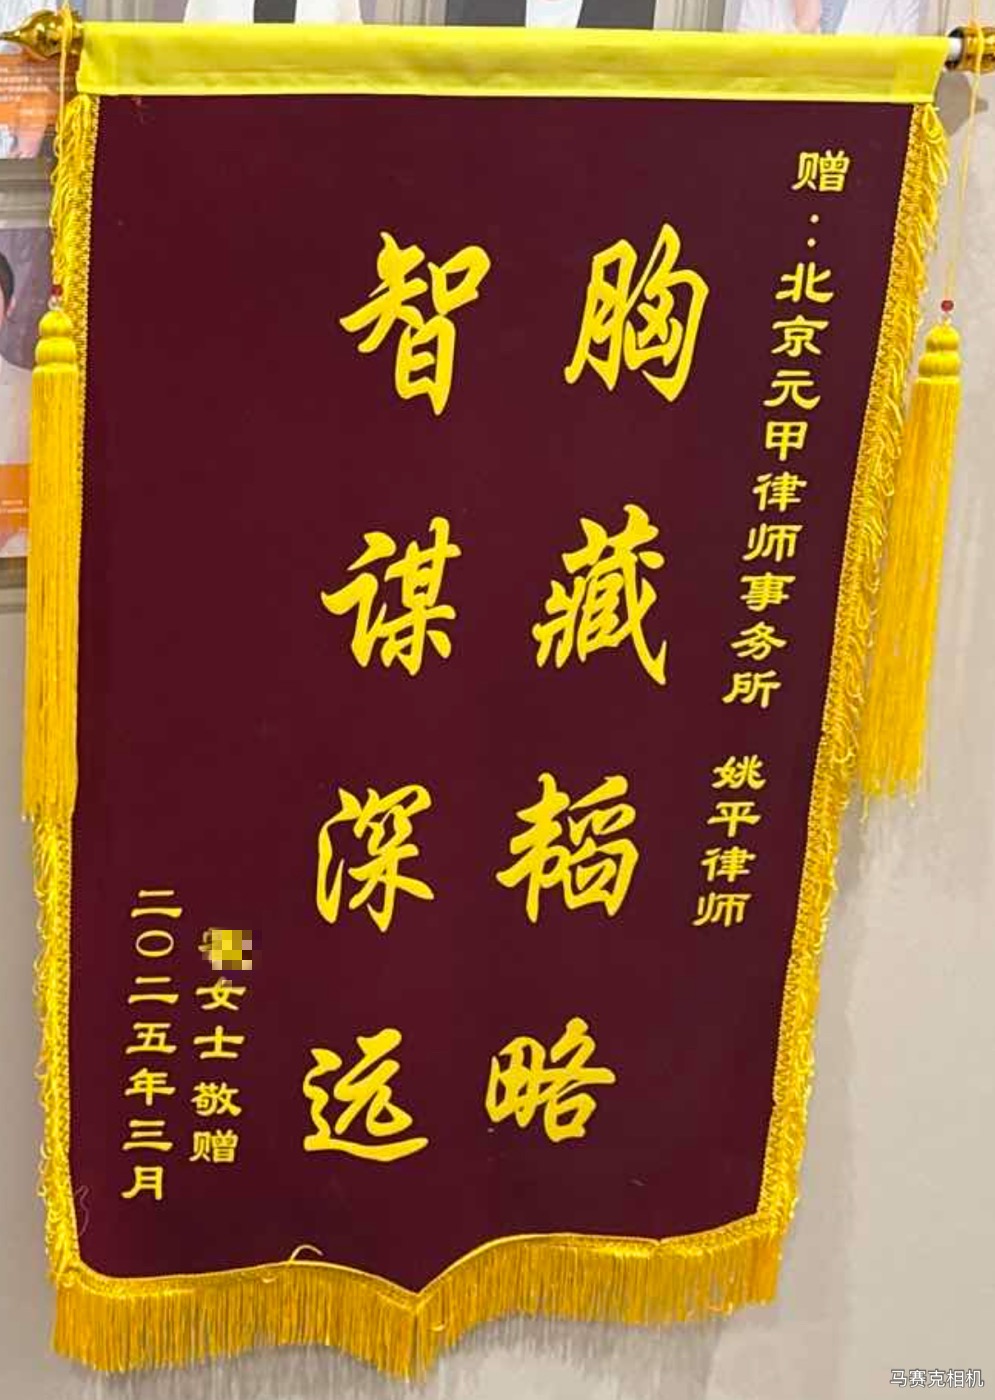 赠：北京元甲律师事务所 姚平律师
胸藏韬略
智谋深远
女士敬赠
二〇二五年三月
马赛克相机